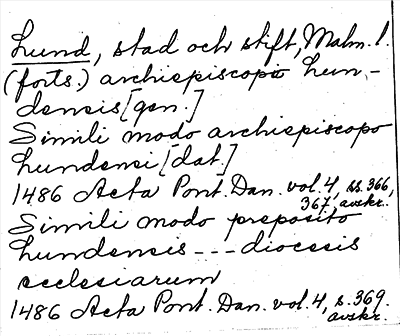 Lund, stad och stift, Malm. l.
(forts.) archiepiscopo Lun-
densis [gen.]
Simili modo archiepiscopo
Lundensi [dat.]
1486 Acta Pont. Dan. vol. 4, ss. 366,
367, avskr.
Simili modo preposito
Lundensis - - - diocesis
ecclesiarum
1486 Acta Pont. Dan. vol. 4, s. 369.
avskr.